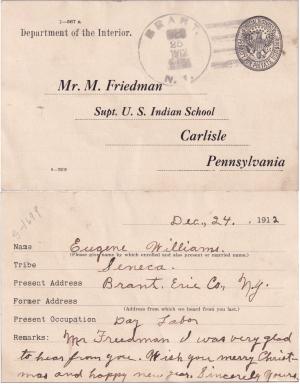 1—567 a
Department of the Interior.
BRANT,
DEC
25
1912
N.Y.
Mr. M. Friedman
Supt. U. S. Indian School
Carlisle
Pennsylvania
Dec., 24, 1912
Name Eugene Williams.
(Please give name by which enrolled and also present or married name.)
Tribe Seneca.
Present Address Brant, Erie Co., N.Y.
Former Address
(Address from which we heard from you last.)
Present Occupation Day Labor
Remarks: Mr Freedman I was very glad
to hear from you. Wish you merry Christ-
mas and happy new year. Sincerely yours